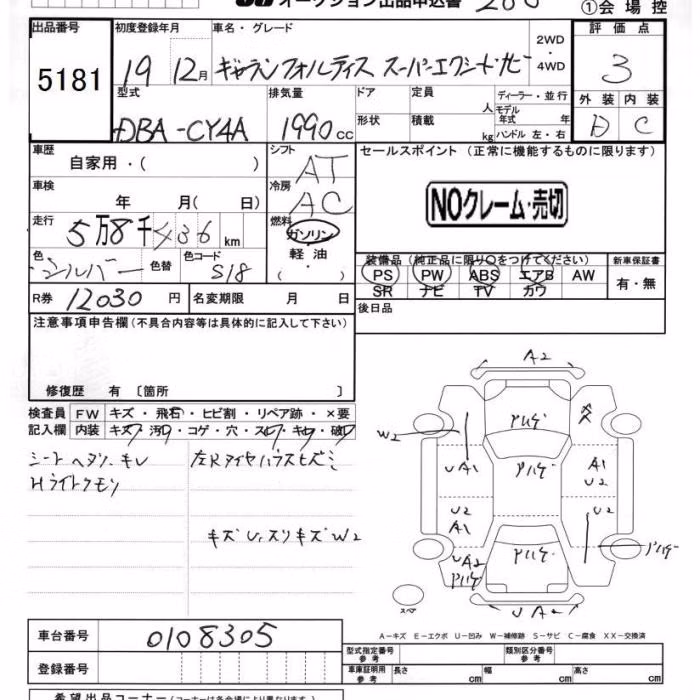 オークション出品申込書
①会場控
出品番号 初度登録年月 車名・グレード 2WD・4WD 評価点
5181 19 12月 ギャランフォルティス スーパーエクシードナビ 3
型式 排気量 ドア 定員 人 ディーラー・並行 外装 内装
DBA-CY4A 1990 cc 形状 積載 kg モデル年式 年 ハンドル 左・右 D C
車歴 自家用・( ) シフト AT セールスポイント (正常に機能するものに限ります)
車検 年 月( 日) 冷房 AC
NOクレーム・売切
走行 5万8千436km 燃料 ガソリン 軽油 ・( )
色 シルバー 色替 色コード S18
装備品(純正品に限り○をつけてください) 新車保証書
PS PW ABS エアB AW 有・無
SR ナビ TV カワ
R券 12030円 名変期限 月 日
後日品
注意事項申告欄(不具合内容等は具体的に記入して下さい)
修復歴 有 〔箇所 〕
検査員記入欄 FW キズ・飛石・ヒビ割・リペア跡・×要
内装 キズ・汚・コゲ・穴・スレ・キレ・破
シートヘタリ、キレ
Hライトクモリ
左Rタイヤハウスヒズミ
キズU,スリキズW2
A2
W2
アハゲ
UA1
アハゲ
A1
U2
U2
A1
U2
UA2
アハゲ
アハゲ
アハゲ
UA2
スペ
A-キズ E-エクボ U-凹み W-補修跡 S-サビ C-腐食 XX-交換済
車台番号 0108305
型式指定番号 参考 類別区分番号 参考
登録番号
車庫証明用 参考 長さ cm 幅 cm 高さ cm
希望出品コーナー(コーナーは各会場により異なります)